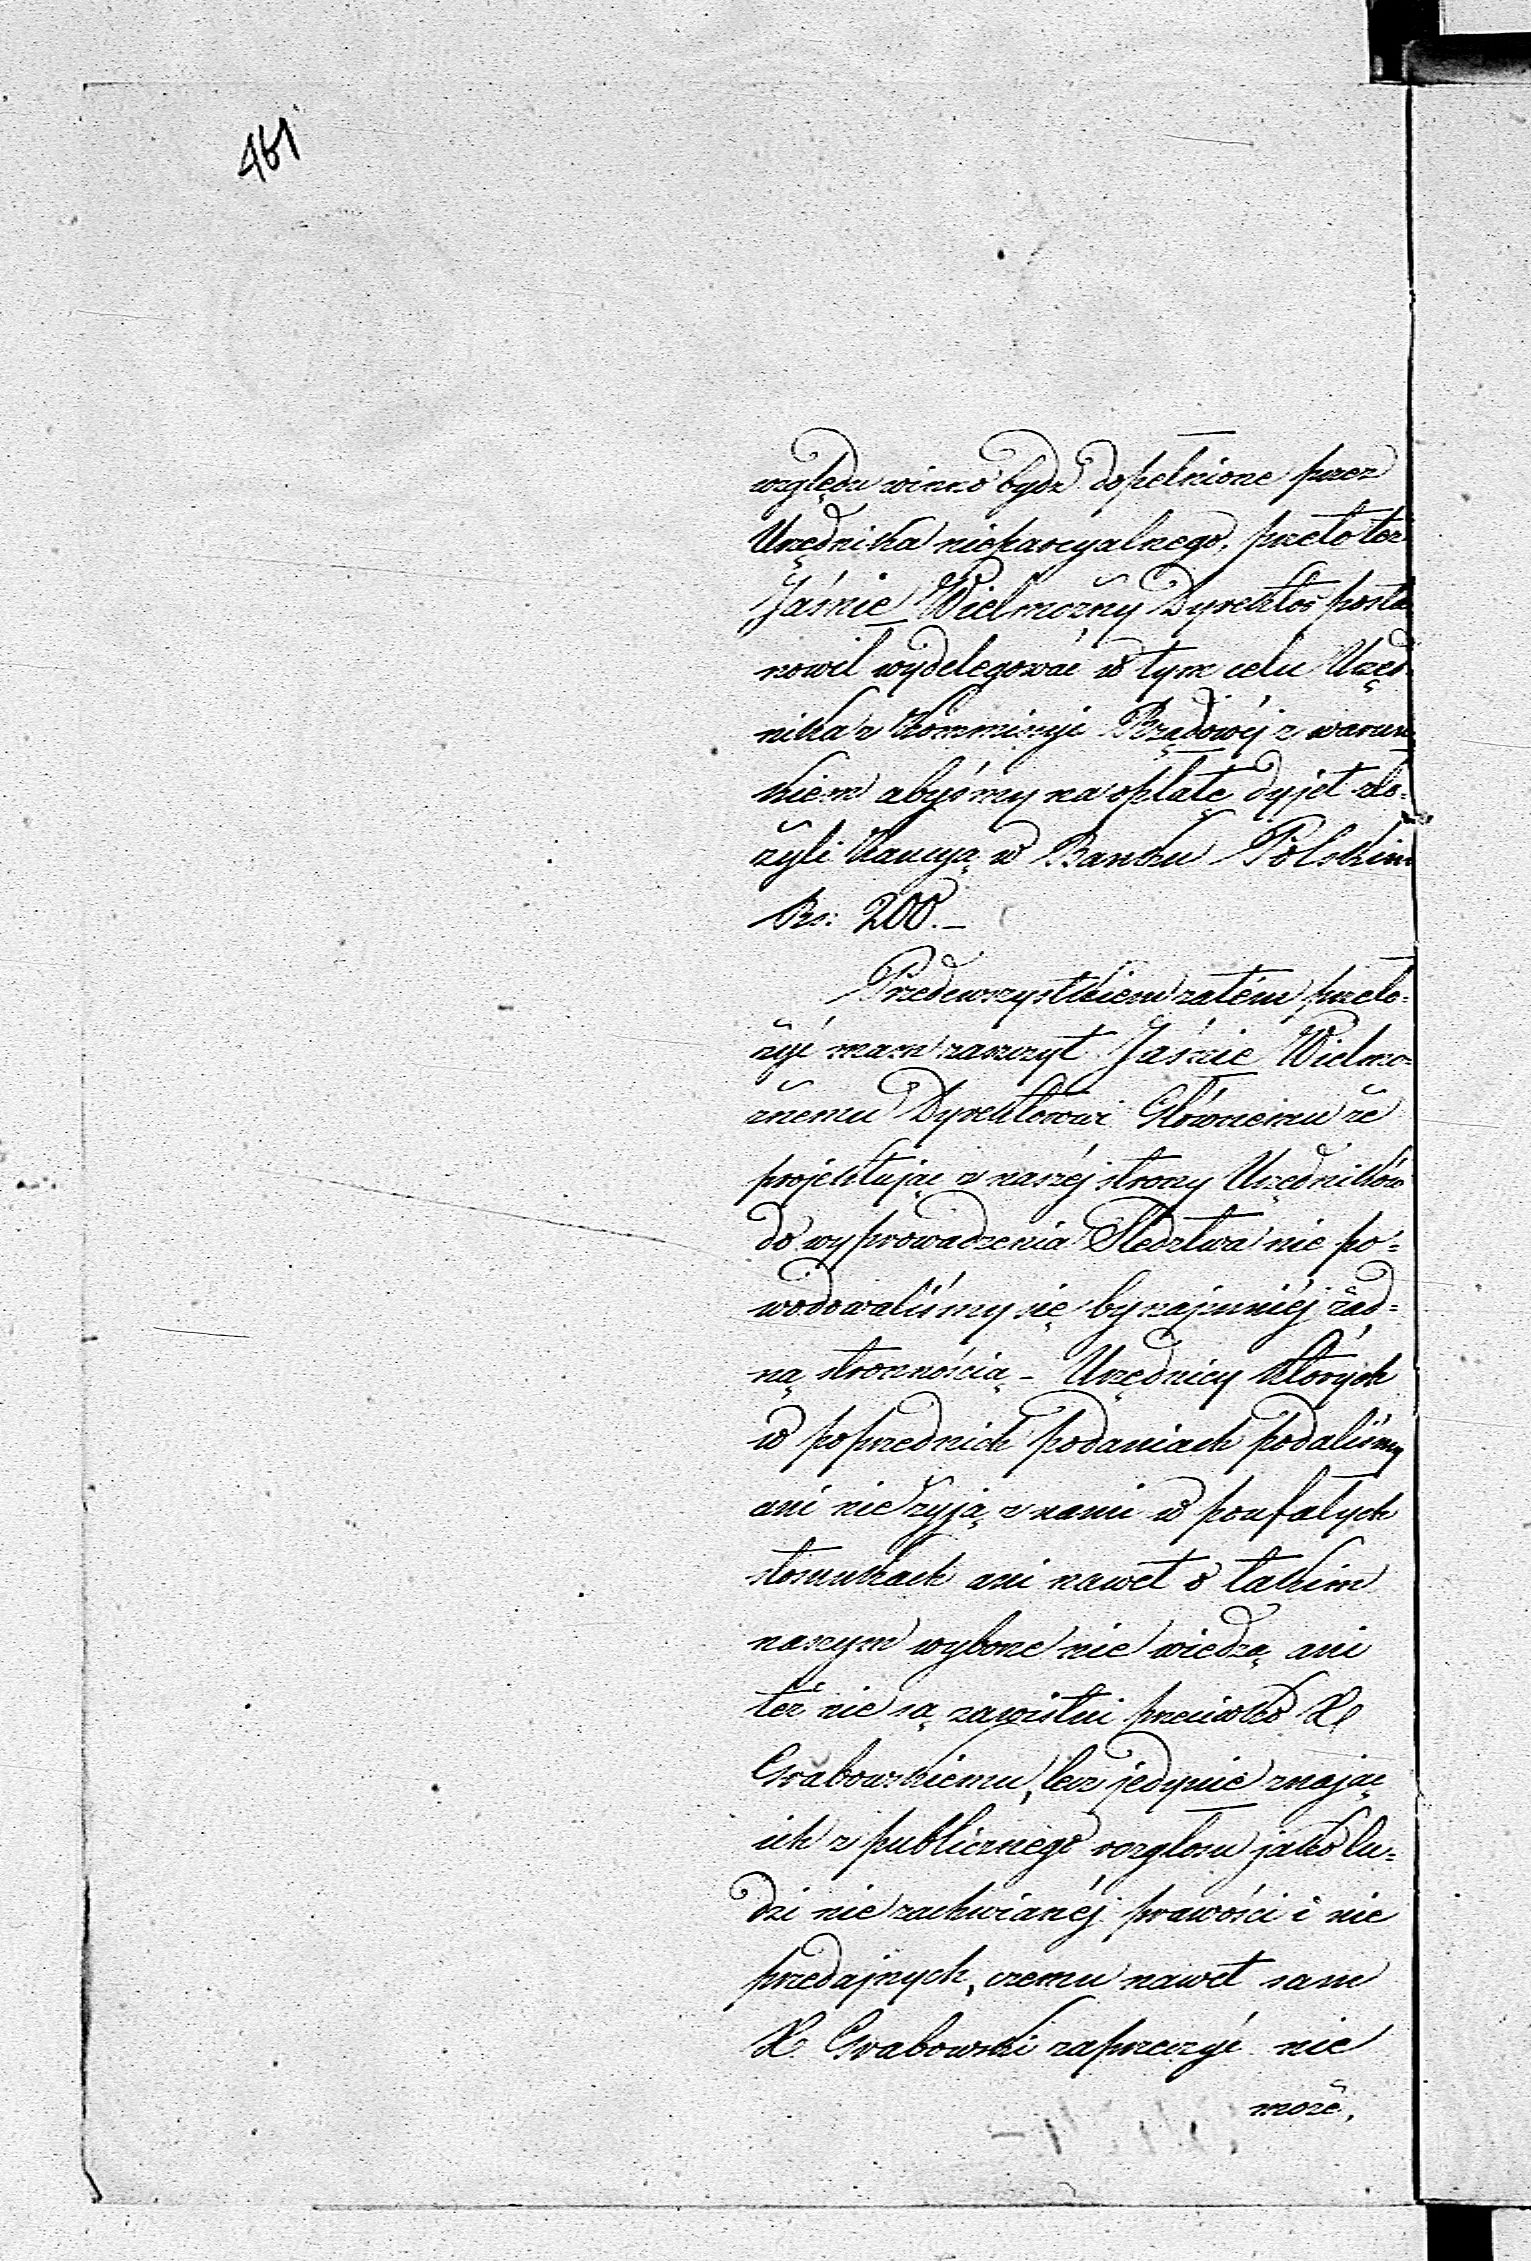 461
względu winno bydź dopełnione przez
Urzędnika nieparcyalnego, przeto też
Jaśnie Wielmożny Dyrektor posta
nowił wydelegować w tym celu Urzęd-
nika z Kommissyi Rządowéj z warun
kiem abyśmy na opłatę dyjet zło-
żyli Kaucyą w Banku Polskim
Rs: 200.—
Przedewszystkiem zatém przeło-
żyć mam zaszczyt Jaśnie Wielmo-
żnemu Dyrektorowi Głównemu że
projektując z naszéj strony Urzędników
do wyprowadzenia Śledztwa nie po-
wodowaliśmy się bynajmniéj żad-
ną stronnością – Urzędnicy których
w poprzednich podaniach podaliśmy
ani nie żyją z nami w poufałych
stosunkach ani nawet o takim
naszym wyborze nie wiedzą ani
też nie są zawistni przeciwko X
Grabowskiemu, lecz jedynie znając
ich z publicznego rozgłosu jako lu-
dzi nie zachwianéj prawości i nie
przedajnych, czemu nawet sam
X. Grabowski zaprzeczyć nie
może,